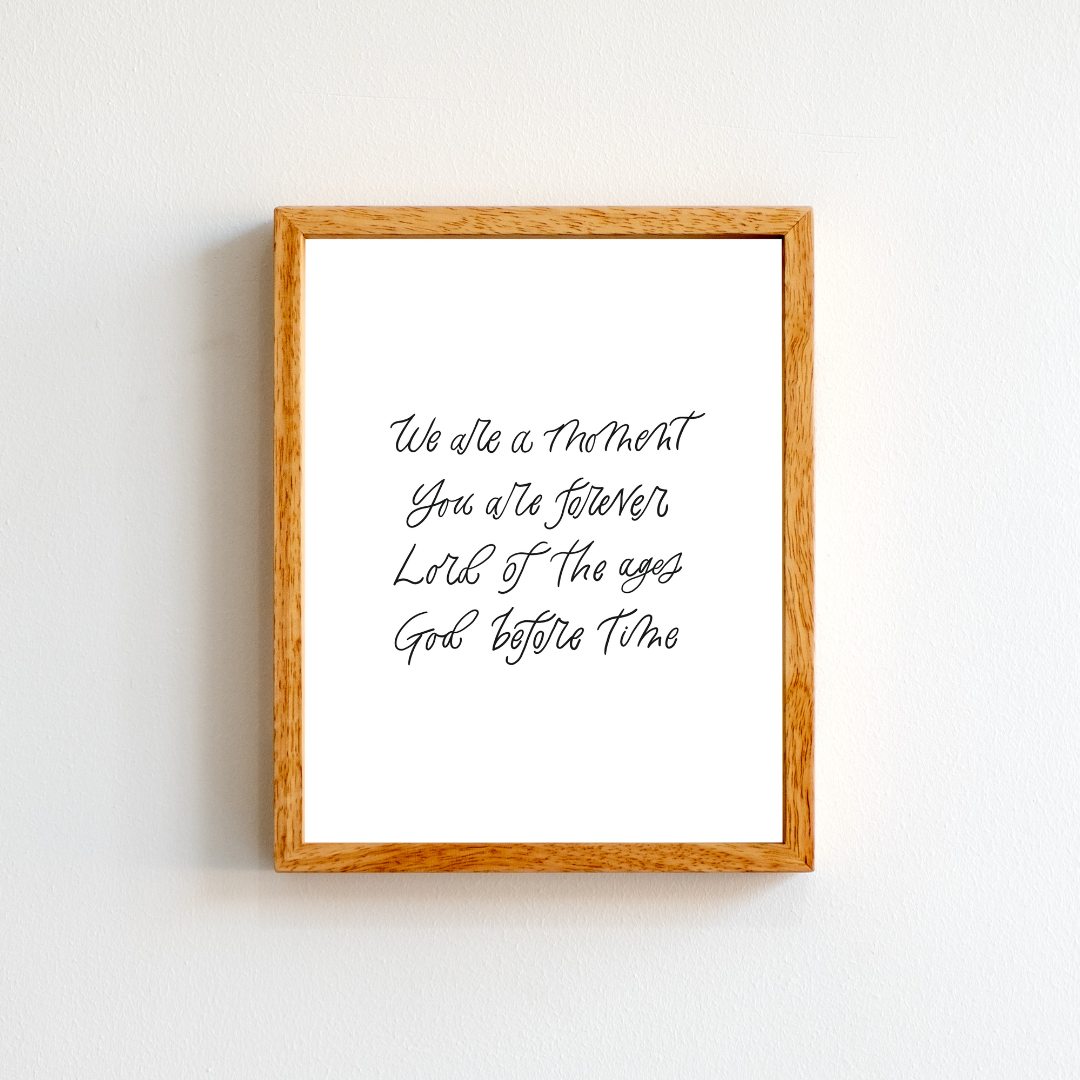 We are a moment
You are forever
Lord of the ages
God before time